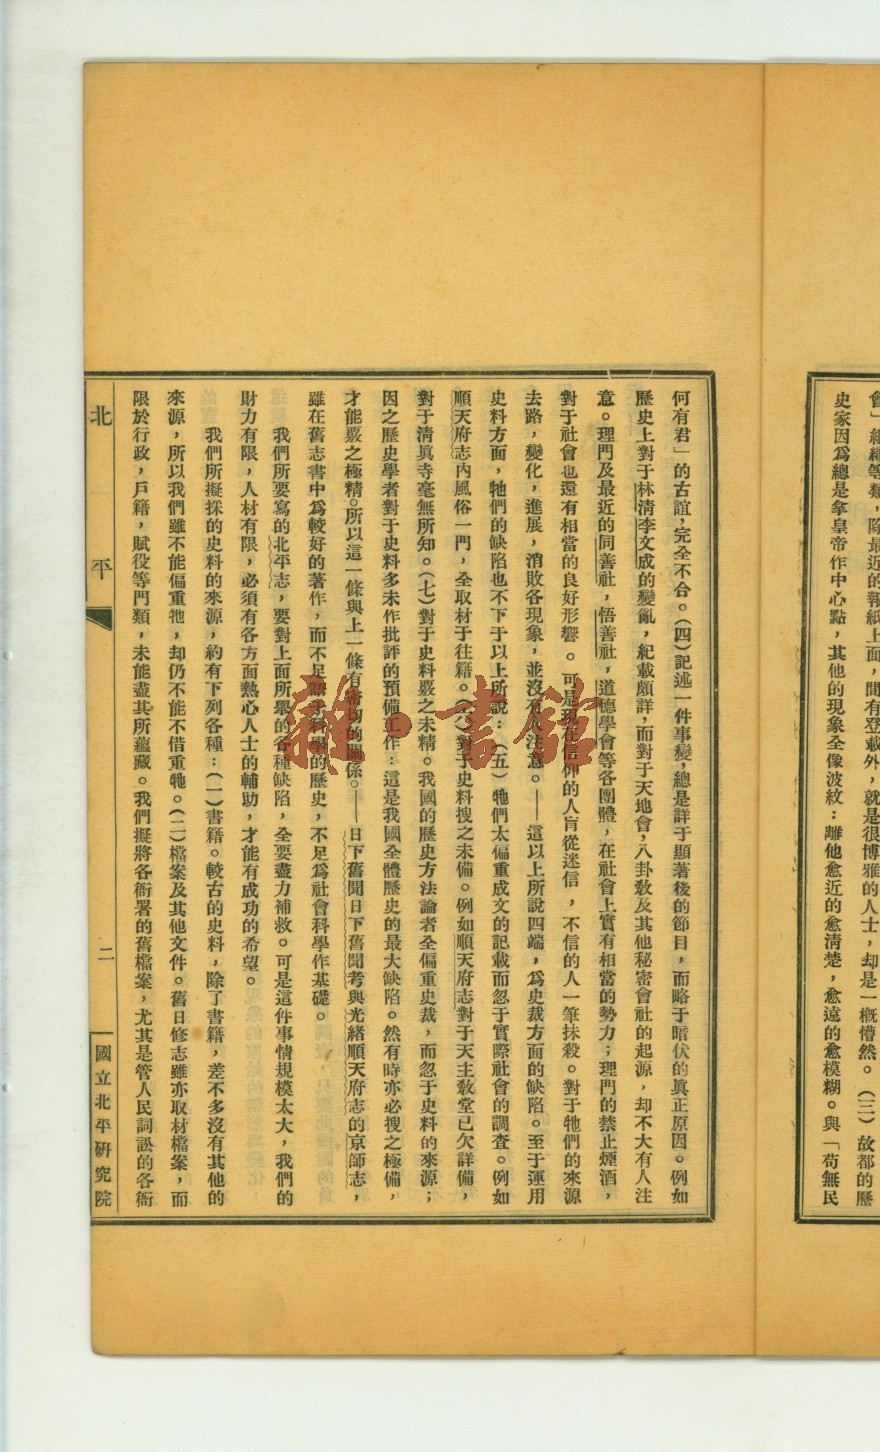 會」組織等類，除最近的報紙上面，間有登載外，就是很博雅的人士，却是一概懵然。（三）故都的歷
史家因爲總是拿皇帝作中心點，其他的現象全像波紋：離他愈近的愈清楚，愈遠的愈模糊。與「苟無民
何有君」的古誼，完全不合。（四）記述一件事變，總是詳于顯著後的節目，而略于暗伏的眞正原因。例如
歷史上對于林淸李文成的變亂，紀載頗詳，而對于天地會，八卦敎及其他秘密會社的起源，却不大有人注
意。理門及最近的同善社，悟善社，道德學會等各團體，在社會上實有相當的勢力；理門的禁止煙酒，
對于社會也還有相當的良好形響。可是現在信仰的人肓從迷信，不信的人一筆抹殺。對于牠們的來源
去路，變化，進展，消敗各現象，並沒有人注意。——這以上所說四端，爲史裁方面的缺陷。至于運用
史料方面，牠們的缺陷也不下于以上所說：（五）牠們太偏重成文的記載而忽于實際社會的調查。例如
順天府志內風俗一門，全取材于往籍。（六）對于史料搜之未備。例如順天府志對于天主敎堂已欠詳備，
對于清眞寺毫無所知。（七）對于史料嚴之未精。我國的歷史方法論者全偏重史裁，而忽于史料的來源；
因之歷史學者對于史料多未作批評的預備工作：這是我國全體歷史的最大缺陷。然有時亦必搜之極備，
才能嚴之極精。所以這一條與上一條有密切的關係。——日下舊聞日下舊聞考與光緖順天府志的京師志，
雖在舊志書中爲較好的著作，而不足語于科學的歷史，不足爲社會科學作基礎。
我們所要寫的北平志，要對上面所舉的各種缺陷，全要盡力補救。可是這件事情規模太大，我們的
財力有限，人材有限，必須有各方面熱心人士的輔助，才能有成功的希望。
我們所擬採的史料的來源，約有下列各種：（一）書籍。較古的史料，除了書籍，差不多沒有其他的
來源，所以我們雖不能偏重牠，却仍不能不借重牠。（二）檔案及其他文件。舊日修志雖亦取材檔案，而
限於行政，戶籍，賦役等門類，未能盡其所蘊藏。我們擬將各衙署的舊檔案，尤其是管人民詞訟的各衙
北平
二
國立北平研究院
雜·書館